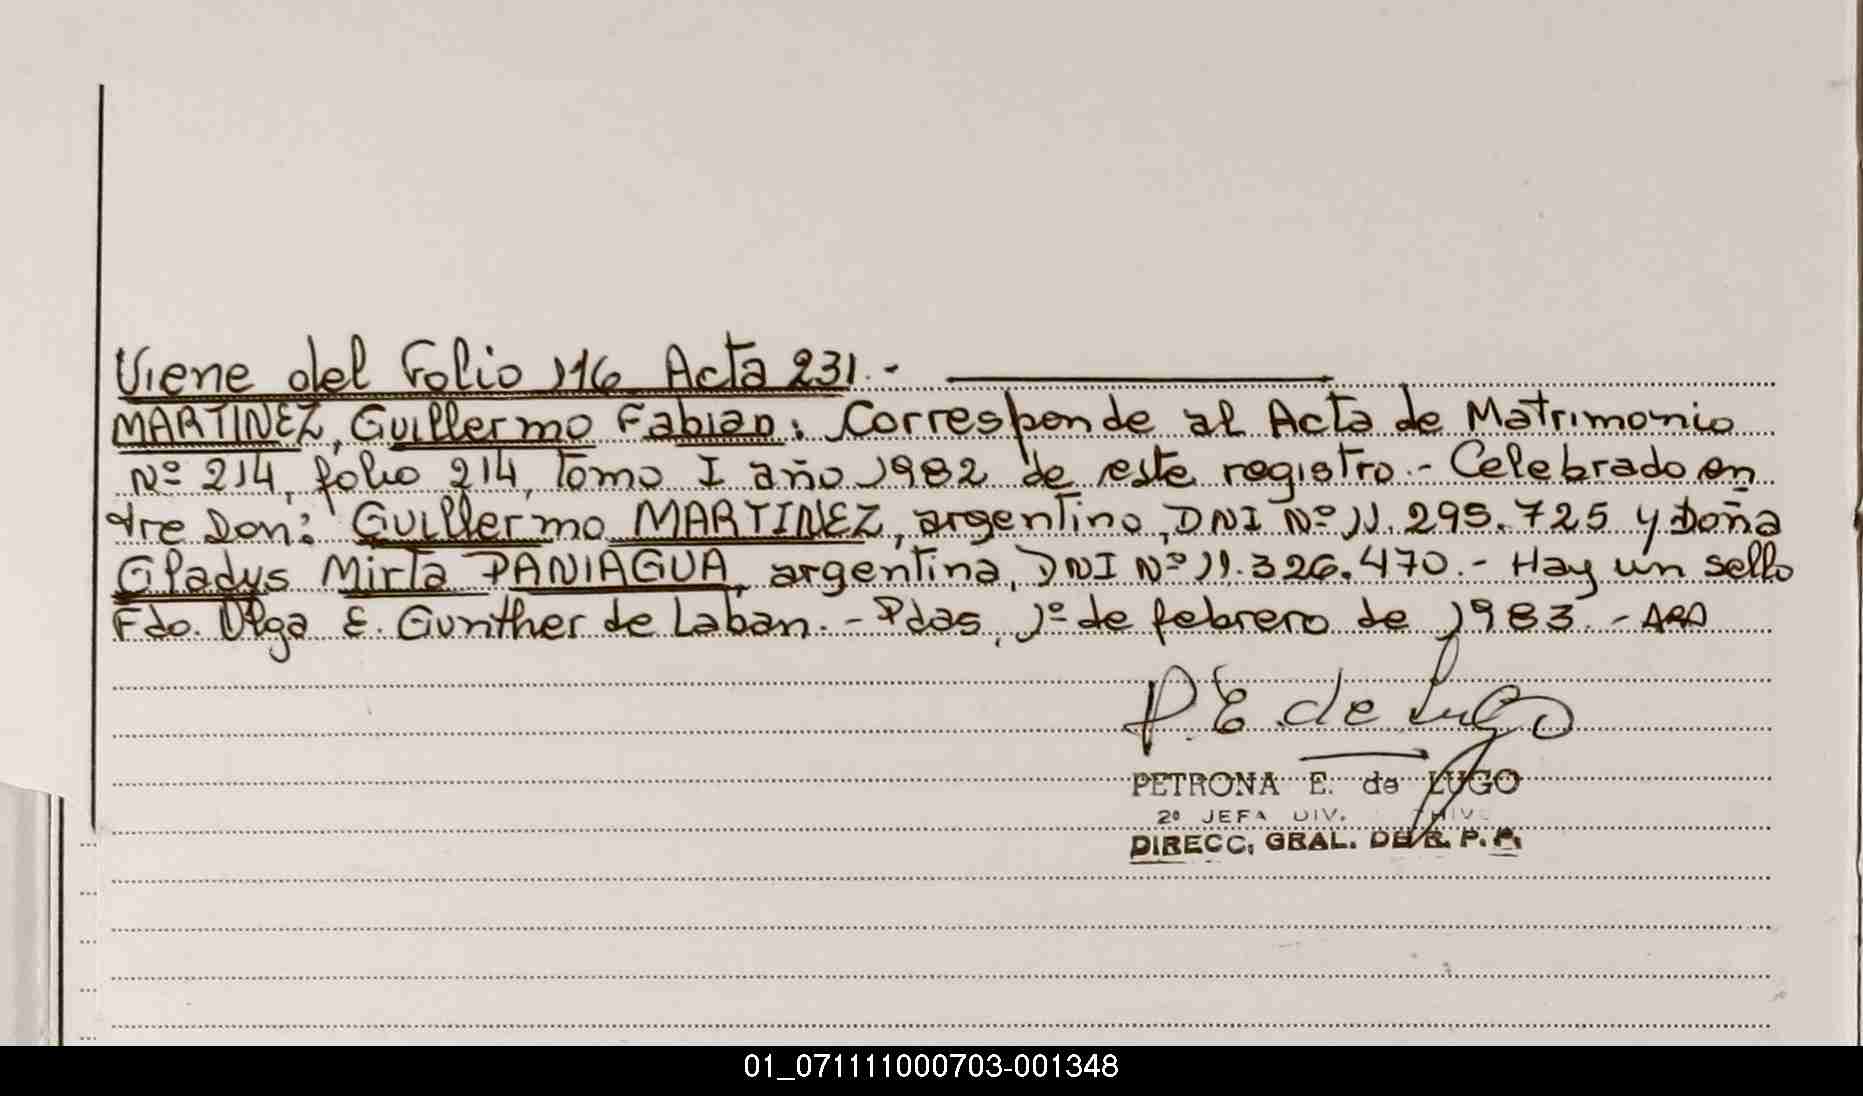 Viene del Folio 116 Acta 231.-
MARTINEZ, Guillermo Fabian: Corresponde al Acta de Matrimonio
Nº 214, folio 214, Tomo I año 1982 de este registro.- Celebrado en
tre Don: Guillermo MARTINEZ, argentino, DNI Nº 11.295.725 y Doña
Gladys Mirta PANIAGUA, argentina, DNI Nº 11.326.470.- Hay un sello
Fdo. Olga E. Gunther de Laban.- Pdas, 1º de febrero de 1983.-
P. E. de Lugo
PETRONA E. de LUGO
2º JEFA DIV.
DIRECC. GRAL. DE R. P. P.
01_071111000703-001348